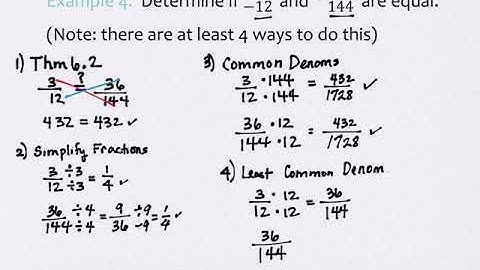 Example 4: Determine if 12 and 144 are equal.
(Note: there are at least 4 ways to do this)
1) Thm 6.2
3/12 ?= 36/144
432 = 432 ✓
2) Simplify Fractions
3÷3/12÷3 = 1/4 ✓
36÷4/144÷4 = 9÷9/36÷9 = 1/4 ✓
3) Common Denoms
3·144/12·144 = 432/1728 ✓
36·12/144·12 = 432/1728 ✓
4) Least Common Denom
3·12/12·12 = 36/144
36/144